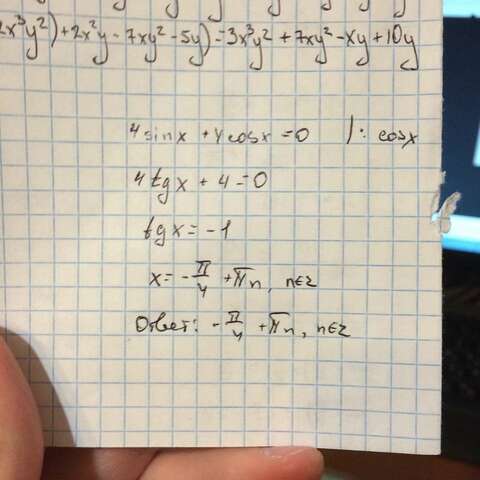 2x³y²)+2x²y - 7xy² - 5y)=3x³y² + 7xy² - xy + 10y
4sinx + 4cosx = 0 |: cosx
4tgx + 4 = 0
tgx = -1
x = -π/4 + πn, n∈z
Ответ: -π/4 + πn, n∈z